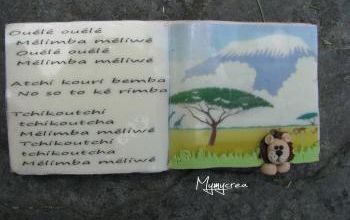 Ouélé ouélé
Mélimba méliwé
Ouélé ouélé
Mélimba méliwé
Atchi kouri bemba
No so to ké rimba
Tchikoutchi
tchikoutcha
Mélimba méliwé
Tchikoutchi
tchikoutcha
Mélimba méliwé
Mymycrea